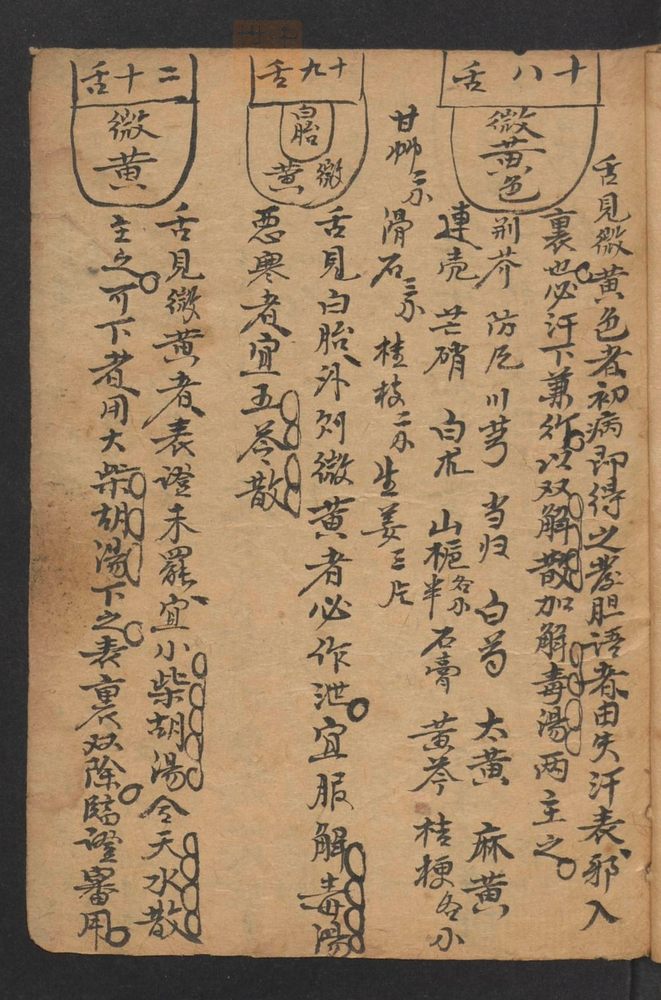 十八舌
微黄色
舌見微黄色者初病即得之發胆語者由失汗表邪入
裏也必汗下兼行以双解散加解毒湯两主之
荆芥 防风 川芎 当归 白芍 大黄 麻黄
連壳 芒硝 白朮 山梔各小半 石膏 黄芩 桔梗各小
甘艸二小 滑石三小 桂枝二小 生姜三片
十九舌
白胎
微黄
舌見白胎外则微黄者必作泄宜服解毒湯
悪寒者宜五苓散
二十舌
微黄
舌見微黄者表證未罷宜小柴胡湯合天水散
主之可下者用大柴胡湯下之表裏双除臨證審用